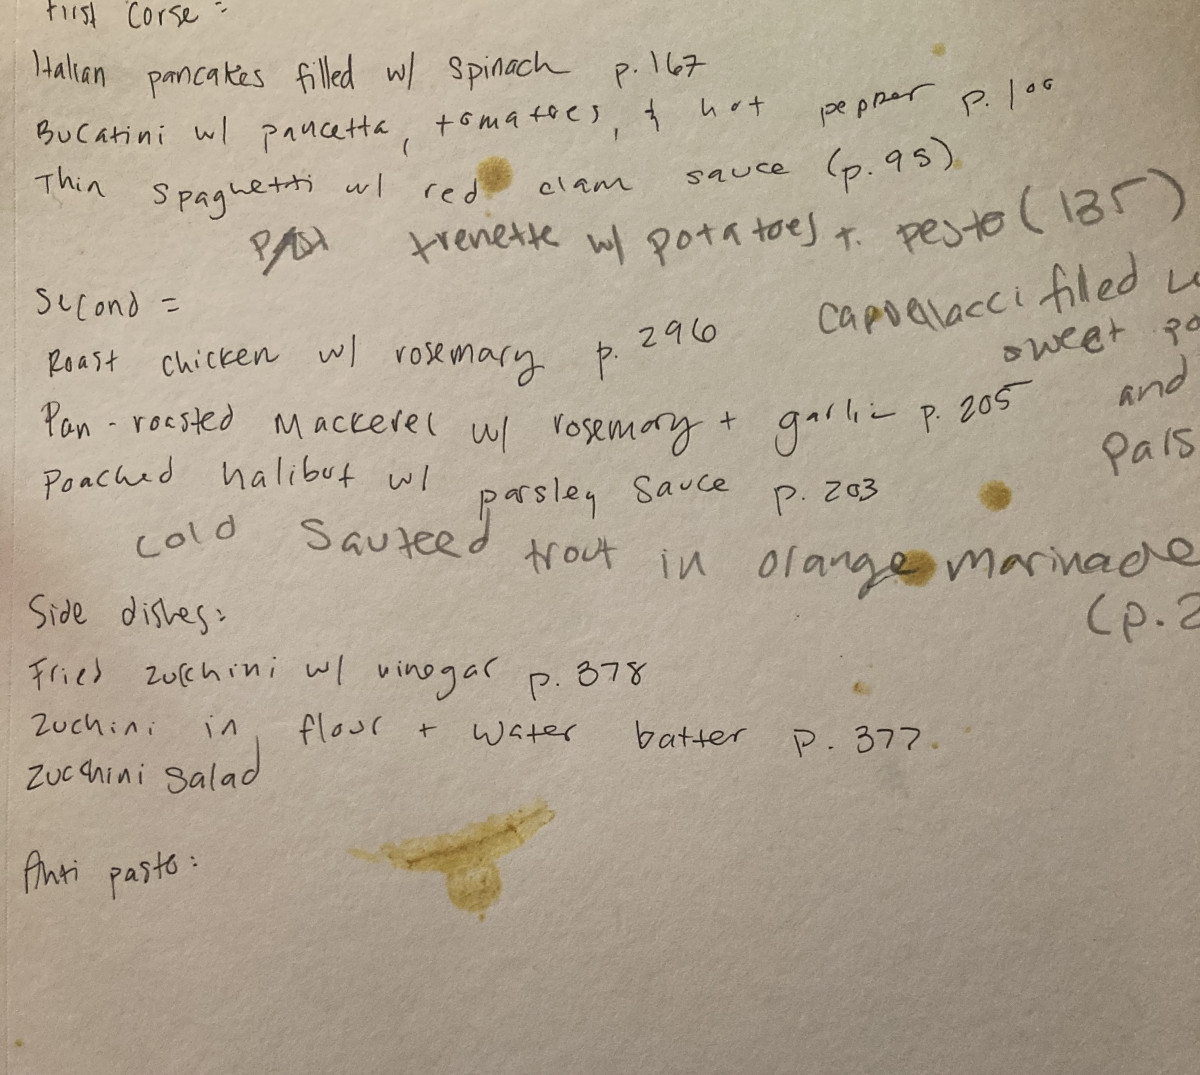 First Corse =
Italian pancakes filled w/ spinach p. 167
Bucatini w/ pancetta, tomatoes, & hot pepper p. 100
Thin spaghetti w/ red clam sauce (p. 95)
trenette w/ potatoes + pesto (135)
Second =
Cappellacci filed
sweet po
Roast chicken w/ rosemary p. 296
and
Pan-roasted Mackerel w/ rosemary + garlic p. 205
Pars
Poached halibut w/ parsley sauce p. 203
cold sauteed trout in orange marinade
(p. 2
Side dishes:
Fried zucchini w/ vinegar p. 378
Zuchini in flour + water batter p. 377
Zucchini salad
Anti pasto: